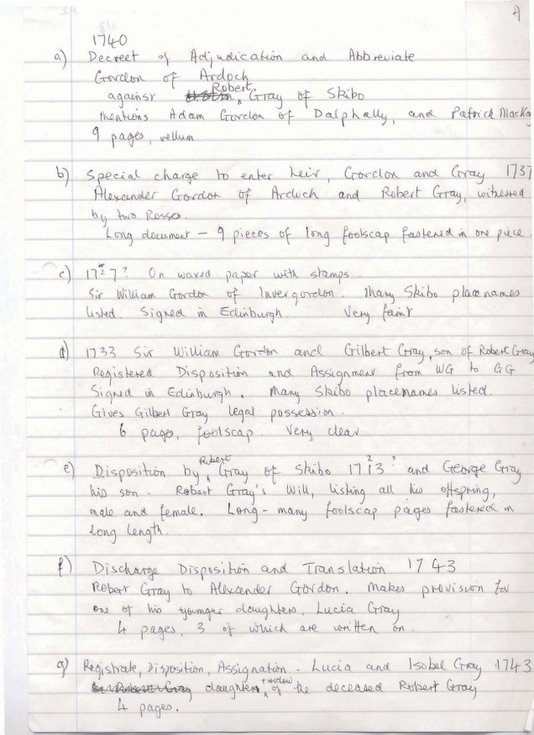 A
1740
a) Decreet of Adjudication and Abbreviate
Gordon of Ardoch
against Robert Gray of Skibo
mentions Adam Gordon of Dalphally, and Patrick Macka
9 pages, vellum
b) Special charge to enter heir, Gordon and Gray 1737
Alexander Gordon of Ardoch and Robert Gray, witnessed
by two Rosses.
Long document - 9 pieces of long foolscap fastened in one piece.
c) 1727? On waxed paper with stamps.
Sir William Gordon of Invergordon. Many Skibo placenames
listed Signed in Edinburgh Very faint
d) 1733 Sir William Gordon and Gilbert Gray, son of Robert Gray
Registered Disposition and Assignment from WG to GG
Signed in Edinburgh. Many Skibo placenames listed.
Gives Gilbert Gray legal possession.
6 pages, foolscap. Very clear
e) Disposition by Robert Gray of Skibo 1713 2? and George Gray
his son. Robert Gray's Will, listing all his offspring,
male and female. Long - many foolscap pages fastened in
long length.
f) Discharge Disposition and Translation 1743
Robert Gray to Alexander Gordon. Makes provision for
one of his younger daughters, Lucia Gray
4 pages, 3 of which are written on.
g) Registrate, Disposition, Assignation. Lucia and Isobel Gray 1743
daughters + widow of the deceased Robert Gray
4 pages.